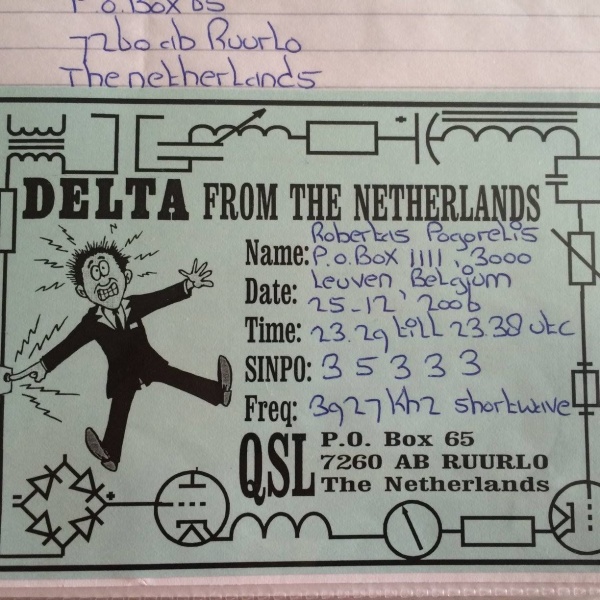 P.O.Box 65
7260 ab Ruurlo
The netherlands
DELTA FROM THE NETHERLANDS
Robertas Pogorelis
Name: P.o.Box 1111, 3000
Leuven Belgium
Date: 25-12, 2006
Time: 23.29 till 23.38 utc
SINPO: 3 5 3 3 3
Freq: 3927 Khz shortwave
QSL P.O. Box 65
7260 AB RUURLO
The Netherlands